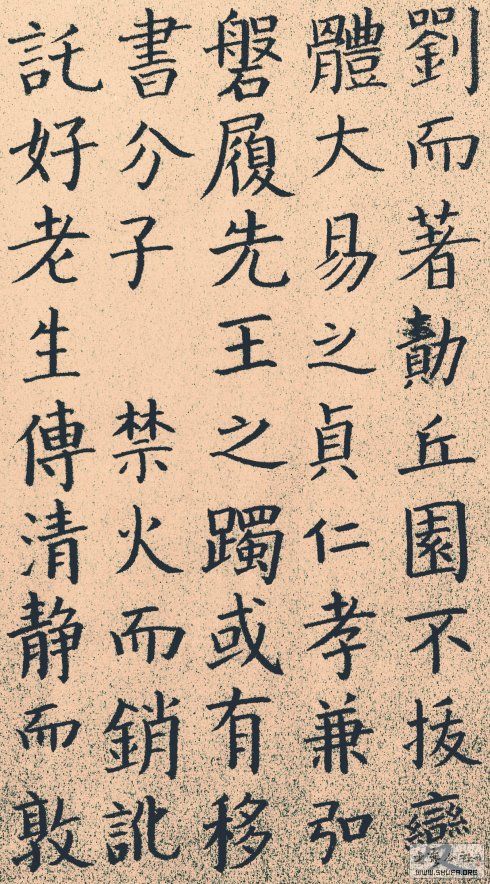 劉而著勣丘園不拔
體大易之貞仁孝兼弘
磐履先王之躅或有移
書分子 禁火而銷訛
託好老生傳清静而敦
WWW.SHUFA.ORG